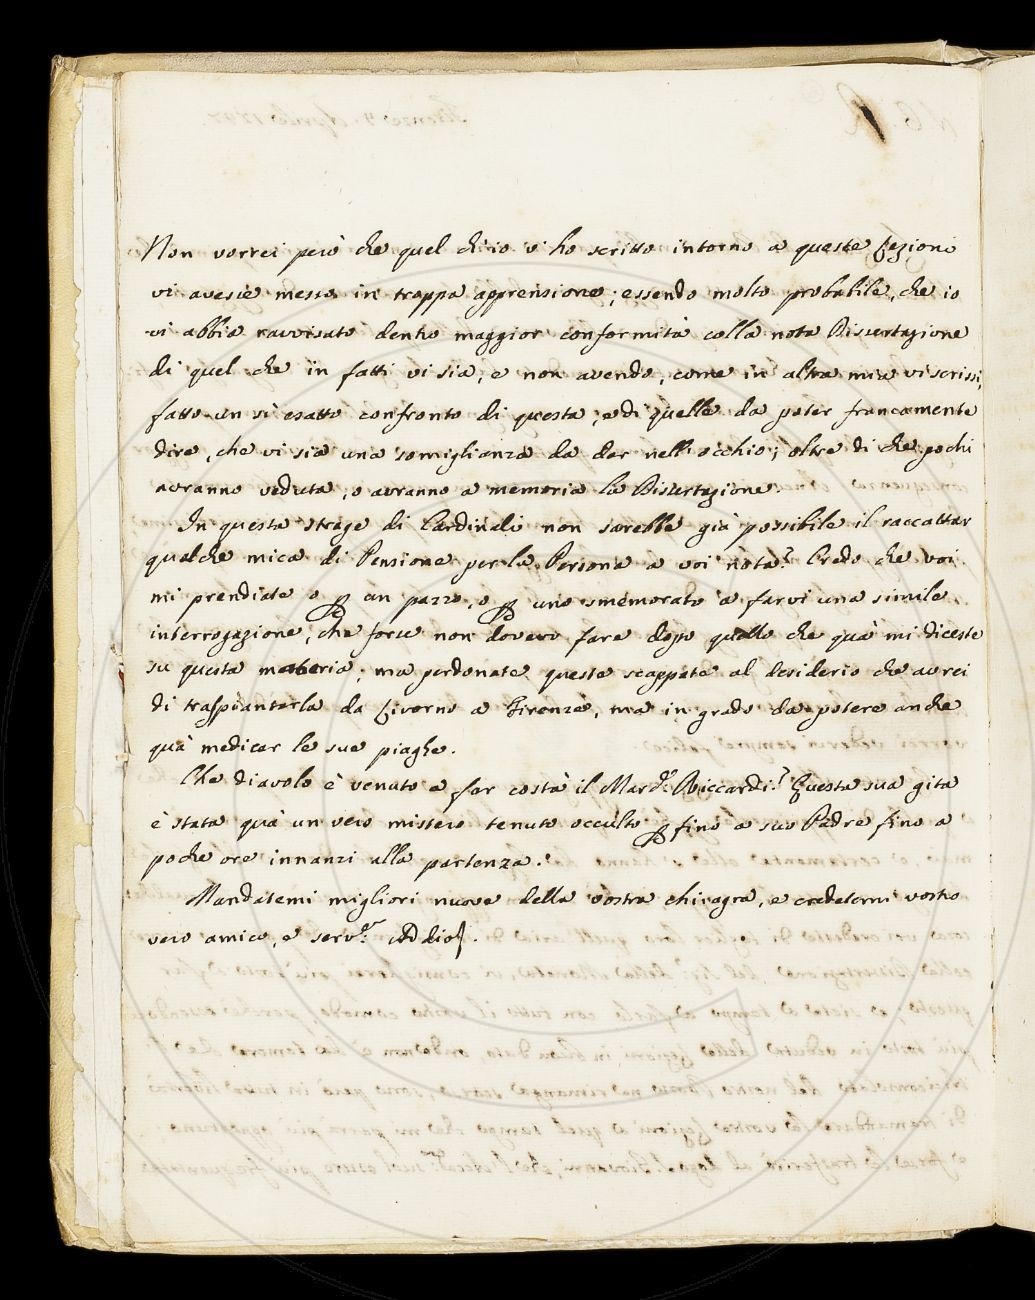 Non vorrei però che quel ch'io v'ho scritto intorno a queste Lezioni
vi avesse messo in troppa apprensione; essendo molto probabile, che io
vi abbia ravvisato dentro maggior conformità colla nota Dissertazione
di quel che in fatti vi sia, e non avendo, come in altra mia vi scrissi,
fatto un sì esatto confronto di questa, e di quelle da poter francamente
dire, che vi sia una somiglianza da dar nell'occhio; oltre di che pochi
avranno veduta, o avranno a memoria la Dissertazione.
In questa strage di Cardinali non sarebbe già possibile il raccattar
qualche mica di Pensione per la Persona a voi nota? Credo che voi
mi prendiate o ꝑ un pazzo, o ꝑ uno smemorato a farvi una simile
interrogazione, che forse non dovevo fare dopo quello che quà mi diceste
su questa materia; ma perdonate queste scappate al desiderio che avrei
di traspiantarla da Livorno a Firenze, ma in grado da potere anche
quà medicar le sue piaghe.
Che diavolo è venuto a far costà il Mar.se Riccardi? Questa sua gita
è stata quà un vero mistero tenuto occulto ꝑ fino a suo Padre fino a
poche ore innanzi alla partenza.
Mandatemi migliori nuove della vostra chiragra, e credetemi vostro
vero amico, e serv.e Addio.